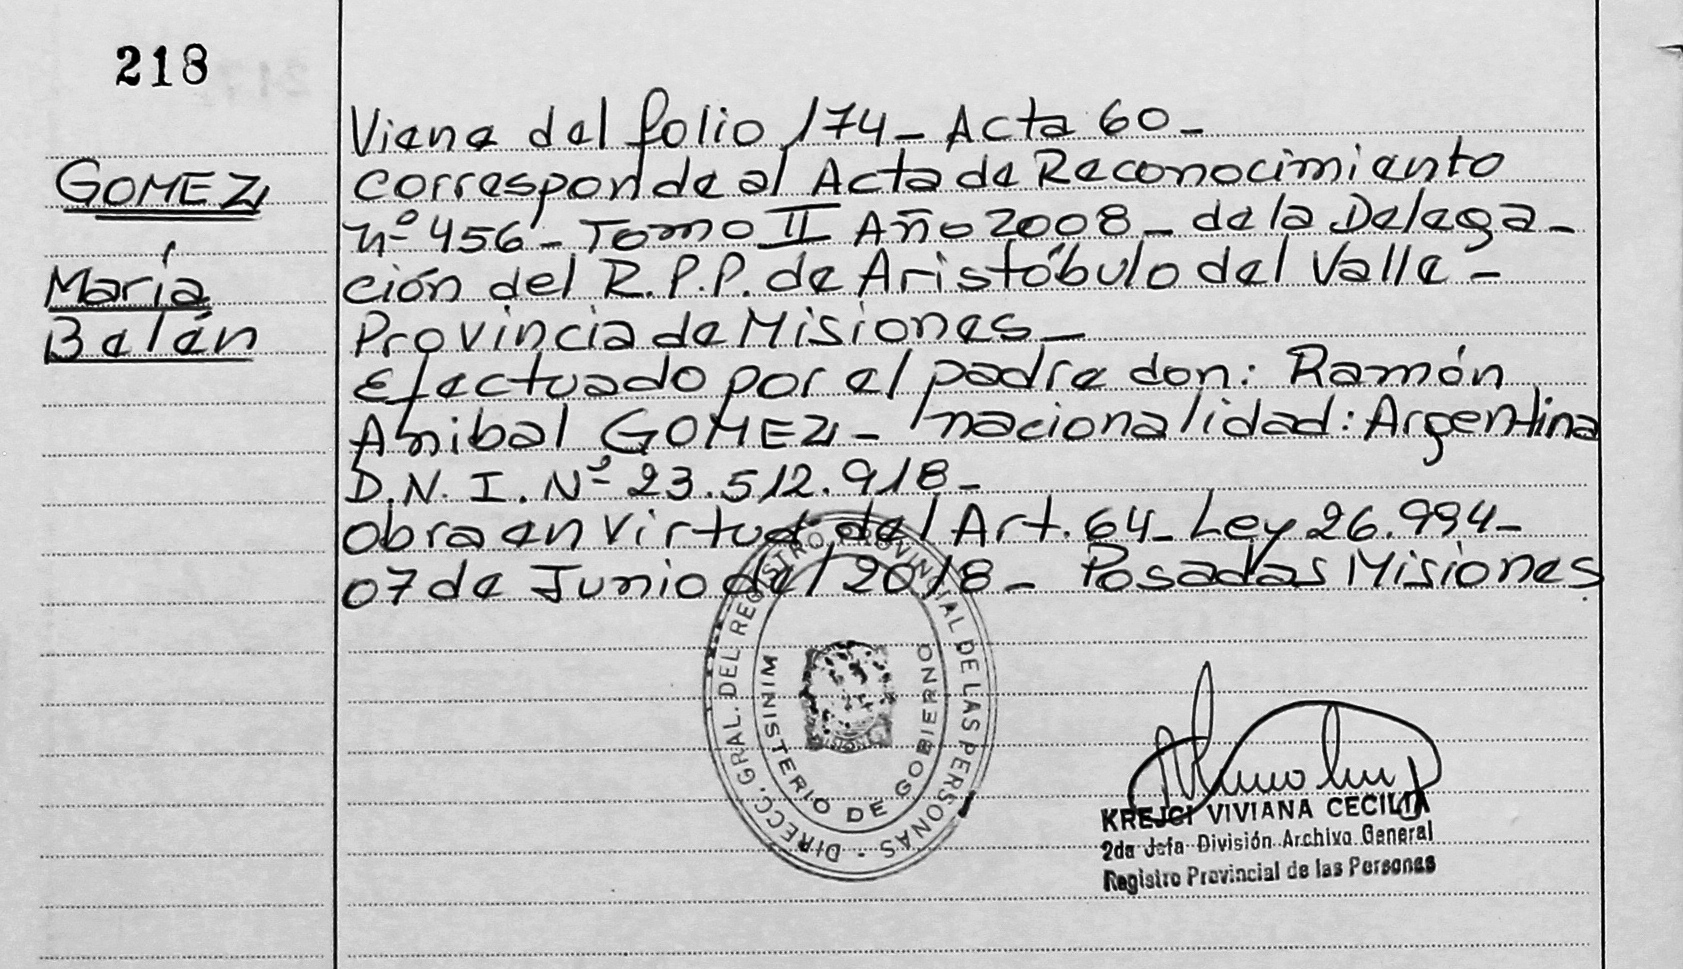 218
GOMEZ
María
Belén
Viene del folio 174_ Acta 60_
corresponde al Acta de Reconocimiento
nº 456 _ Tomo II Año 2008_ de la Delega_
ción del R.P.P. de Aristóbulo del Valle _
Provincia de Misiones_
Efectuado por el padre don: Ramón
Anibal GOMEZ _ nacionalidad: Argentina
D.N.I. Nº 23.512.918_
obra en virtud del Art. 64_ Ley 26.994_
07 de Junio del 2018_ Posadas Misiones
DIRECC. GRAL. DEL REGISTRO PROVINCIAL DE LAS PERSONAS
MINISTERIO DE GOBIERNO
KREJCI VIVIANA CECILIA
2da Jefa División Archivo General
Registro Provincial de las Personas